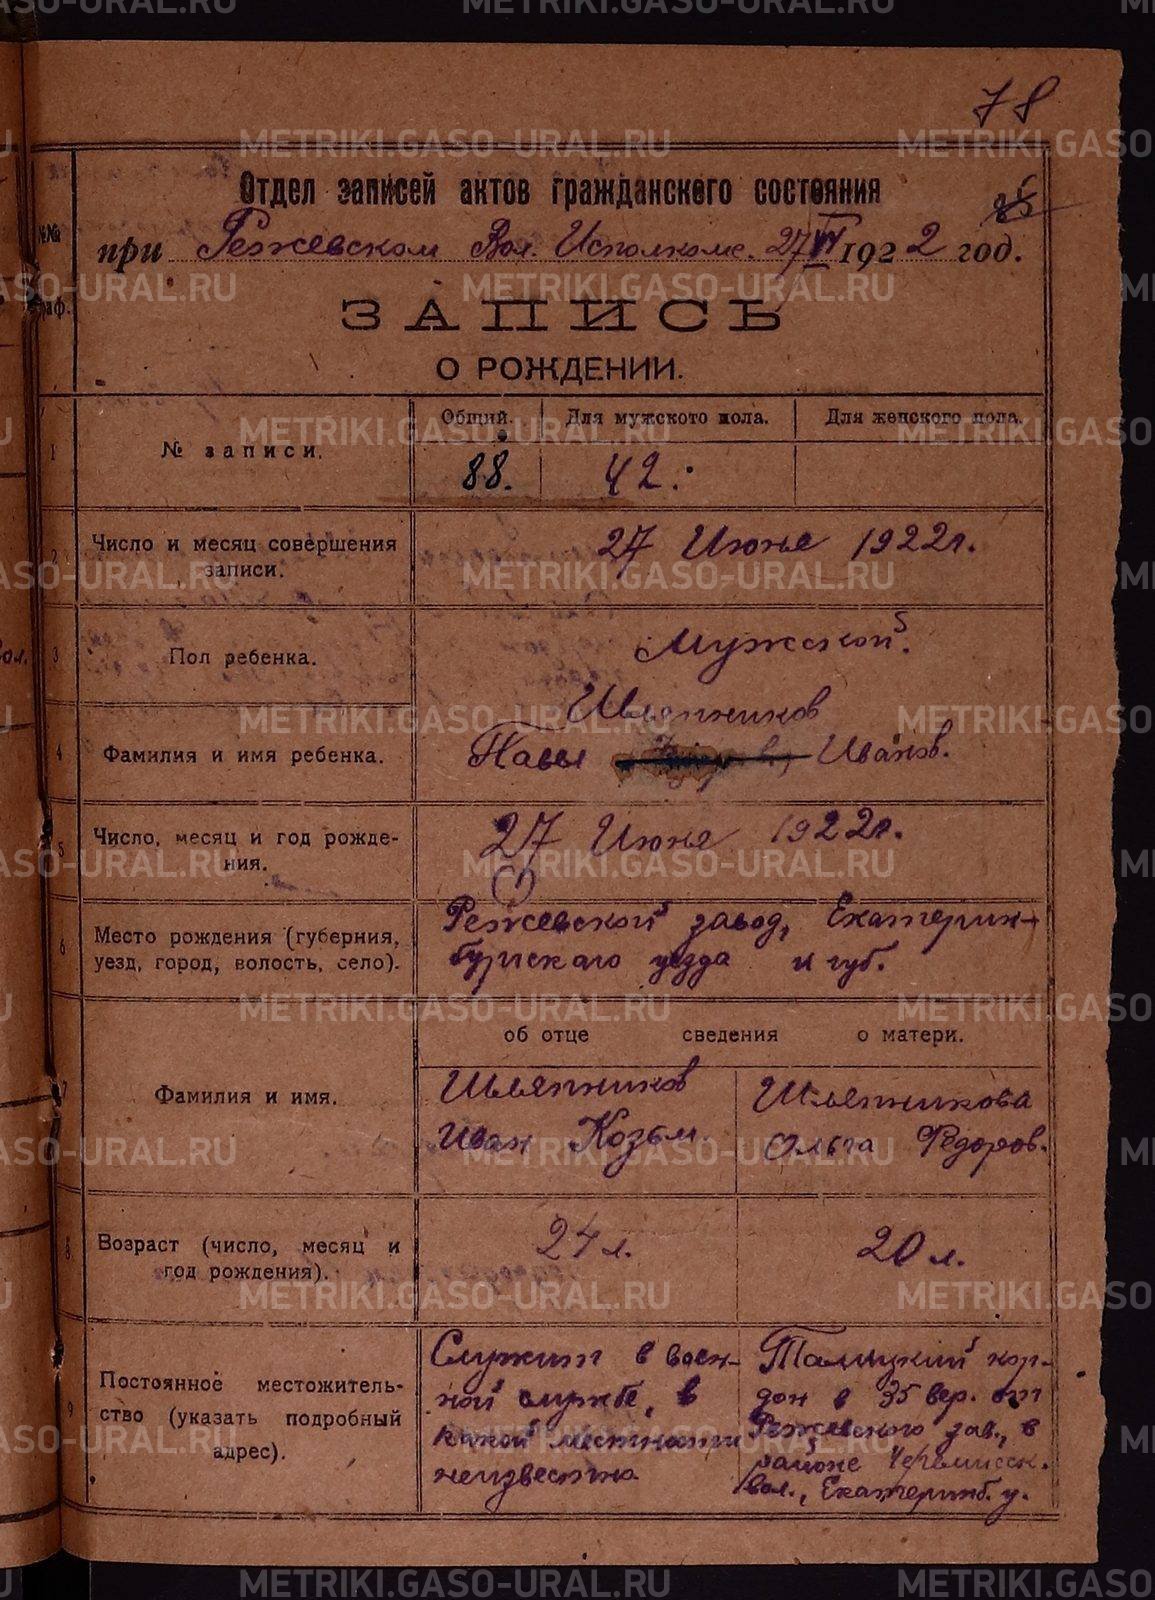 78
Отдел записей актов гражданского состояния
при Режевском Вол. Исполкоме. 27/VI 1922 год.
№№
граф.
ЗАПИСЬ
О РОЖДЕНИИ.
Общий. Для мужского пола. Для женского пола.
1 № записи. 88. 42.
2 Число и месяц совершения записи. 27 Июня 1922г.
3 Пол ребенка. Мужской.
Шляпников
4 Фамилия и имя ребенка. Павел Иванов.
5 Число, месяц и год рождения. 27 Июня 1922г.
6 Место рождения (губерния, Режевской завод, Екатерин-
уезд, город, волость, село). бургскаго уезда и губ.
об отце сведения о матери.
7 Фамилия и имя. Шляпников Шляпникова
Иван Козьм. Ольга Федоров.
8 Возраст (число, месяц и год рождения). 24 л. 20 л.
9 Постоянное местожительство (указать подробный адрес).
Служит в воен-
ной службе, в
какой местности
неизвестно
Талицкий кор-
дон в 35 вер. от
Режевского зав., в
районе Черемисск.
вол., Екатеринб. у.
METRIKI.GASO-URAL.RU